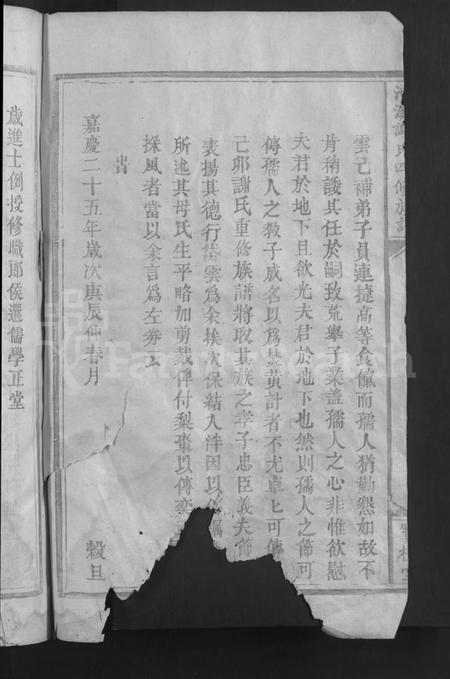 雲已補弟子員連捷高等食餼而孺人猶勤懇如故不
肯稍諉其任於嗣致荒舉子業蓋孺人之心非惟欲慰
夫君於地下且欲光夫君於地下也然則孺人之節可
傳孺人之教子成名以為焚黃計者不尤卓卓可傳
己卯謝氏重修族譜將取其族之孝子忠臣義夫節
表揚其德行 雲為余挨次保結入泮因以 屬
所述其母氏生平略加剪裁俾付梨棗以傳奕
採風者當以余言為左券云
嘉慶二十五年歲次庚辰仲春月 穀旦
歲進士例授修職郎候選儒學正堂
FamilySearch